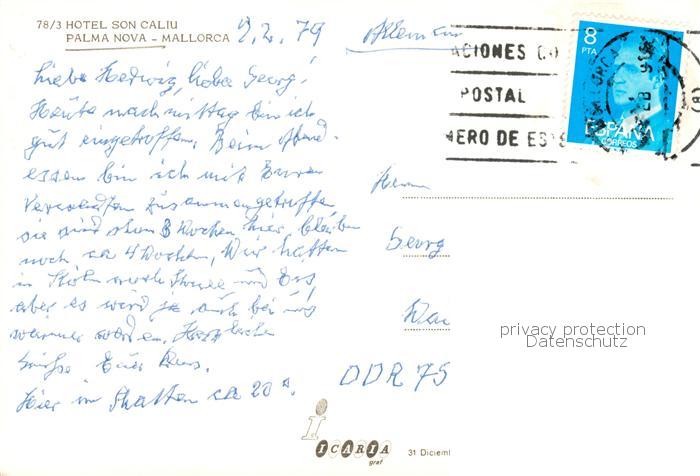 78/3 HOTEL SON CALIU
PALMA NOVA - MALLORCA
9.2.79
Liebe Hedwig, lieber Georg!
Heute nachmittag bin ich
gut eingetroffen. Beim Abend-
essen bin ich mit Euren
Verwandten zusammengetroffen
sie sind schon 3 Wochen hier, bleiben
noch ca 4 Wochen. Wir hatten
in Köln noch Schnee und Eis
aber es wird ja auch bei uns
wärmer werden. Herzliche
Grüße Euer
Hier im Schatten ca 20°.
ACIONES CO
POSTAL
MERO DE EST
8
PTA
ESPAÑA
CORREOS
Herrn
Georg
DDR 75
privacy protection
Datenschutz
i
ICARIA
graf
31 Diciembre